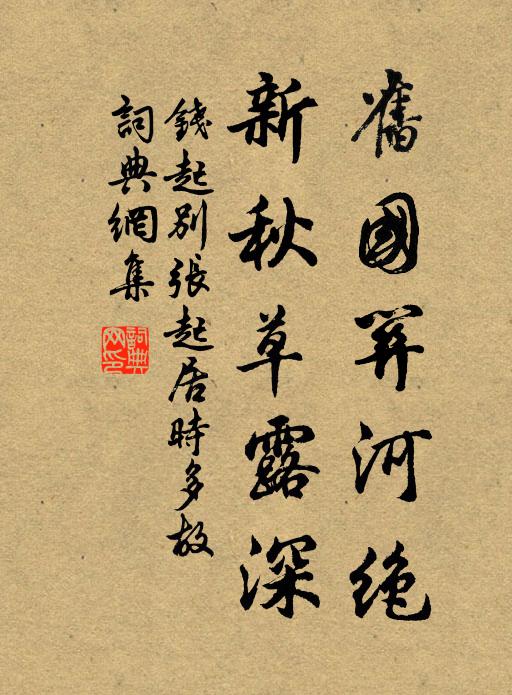 舊國關河絶
新秋草露深
錢起别張起居時多故
詞典網集
詞典網印